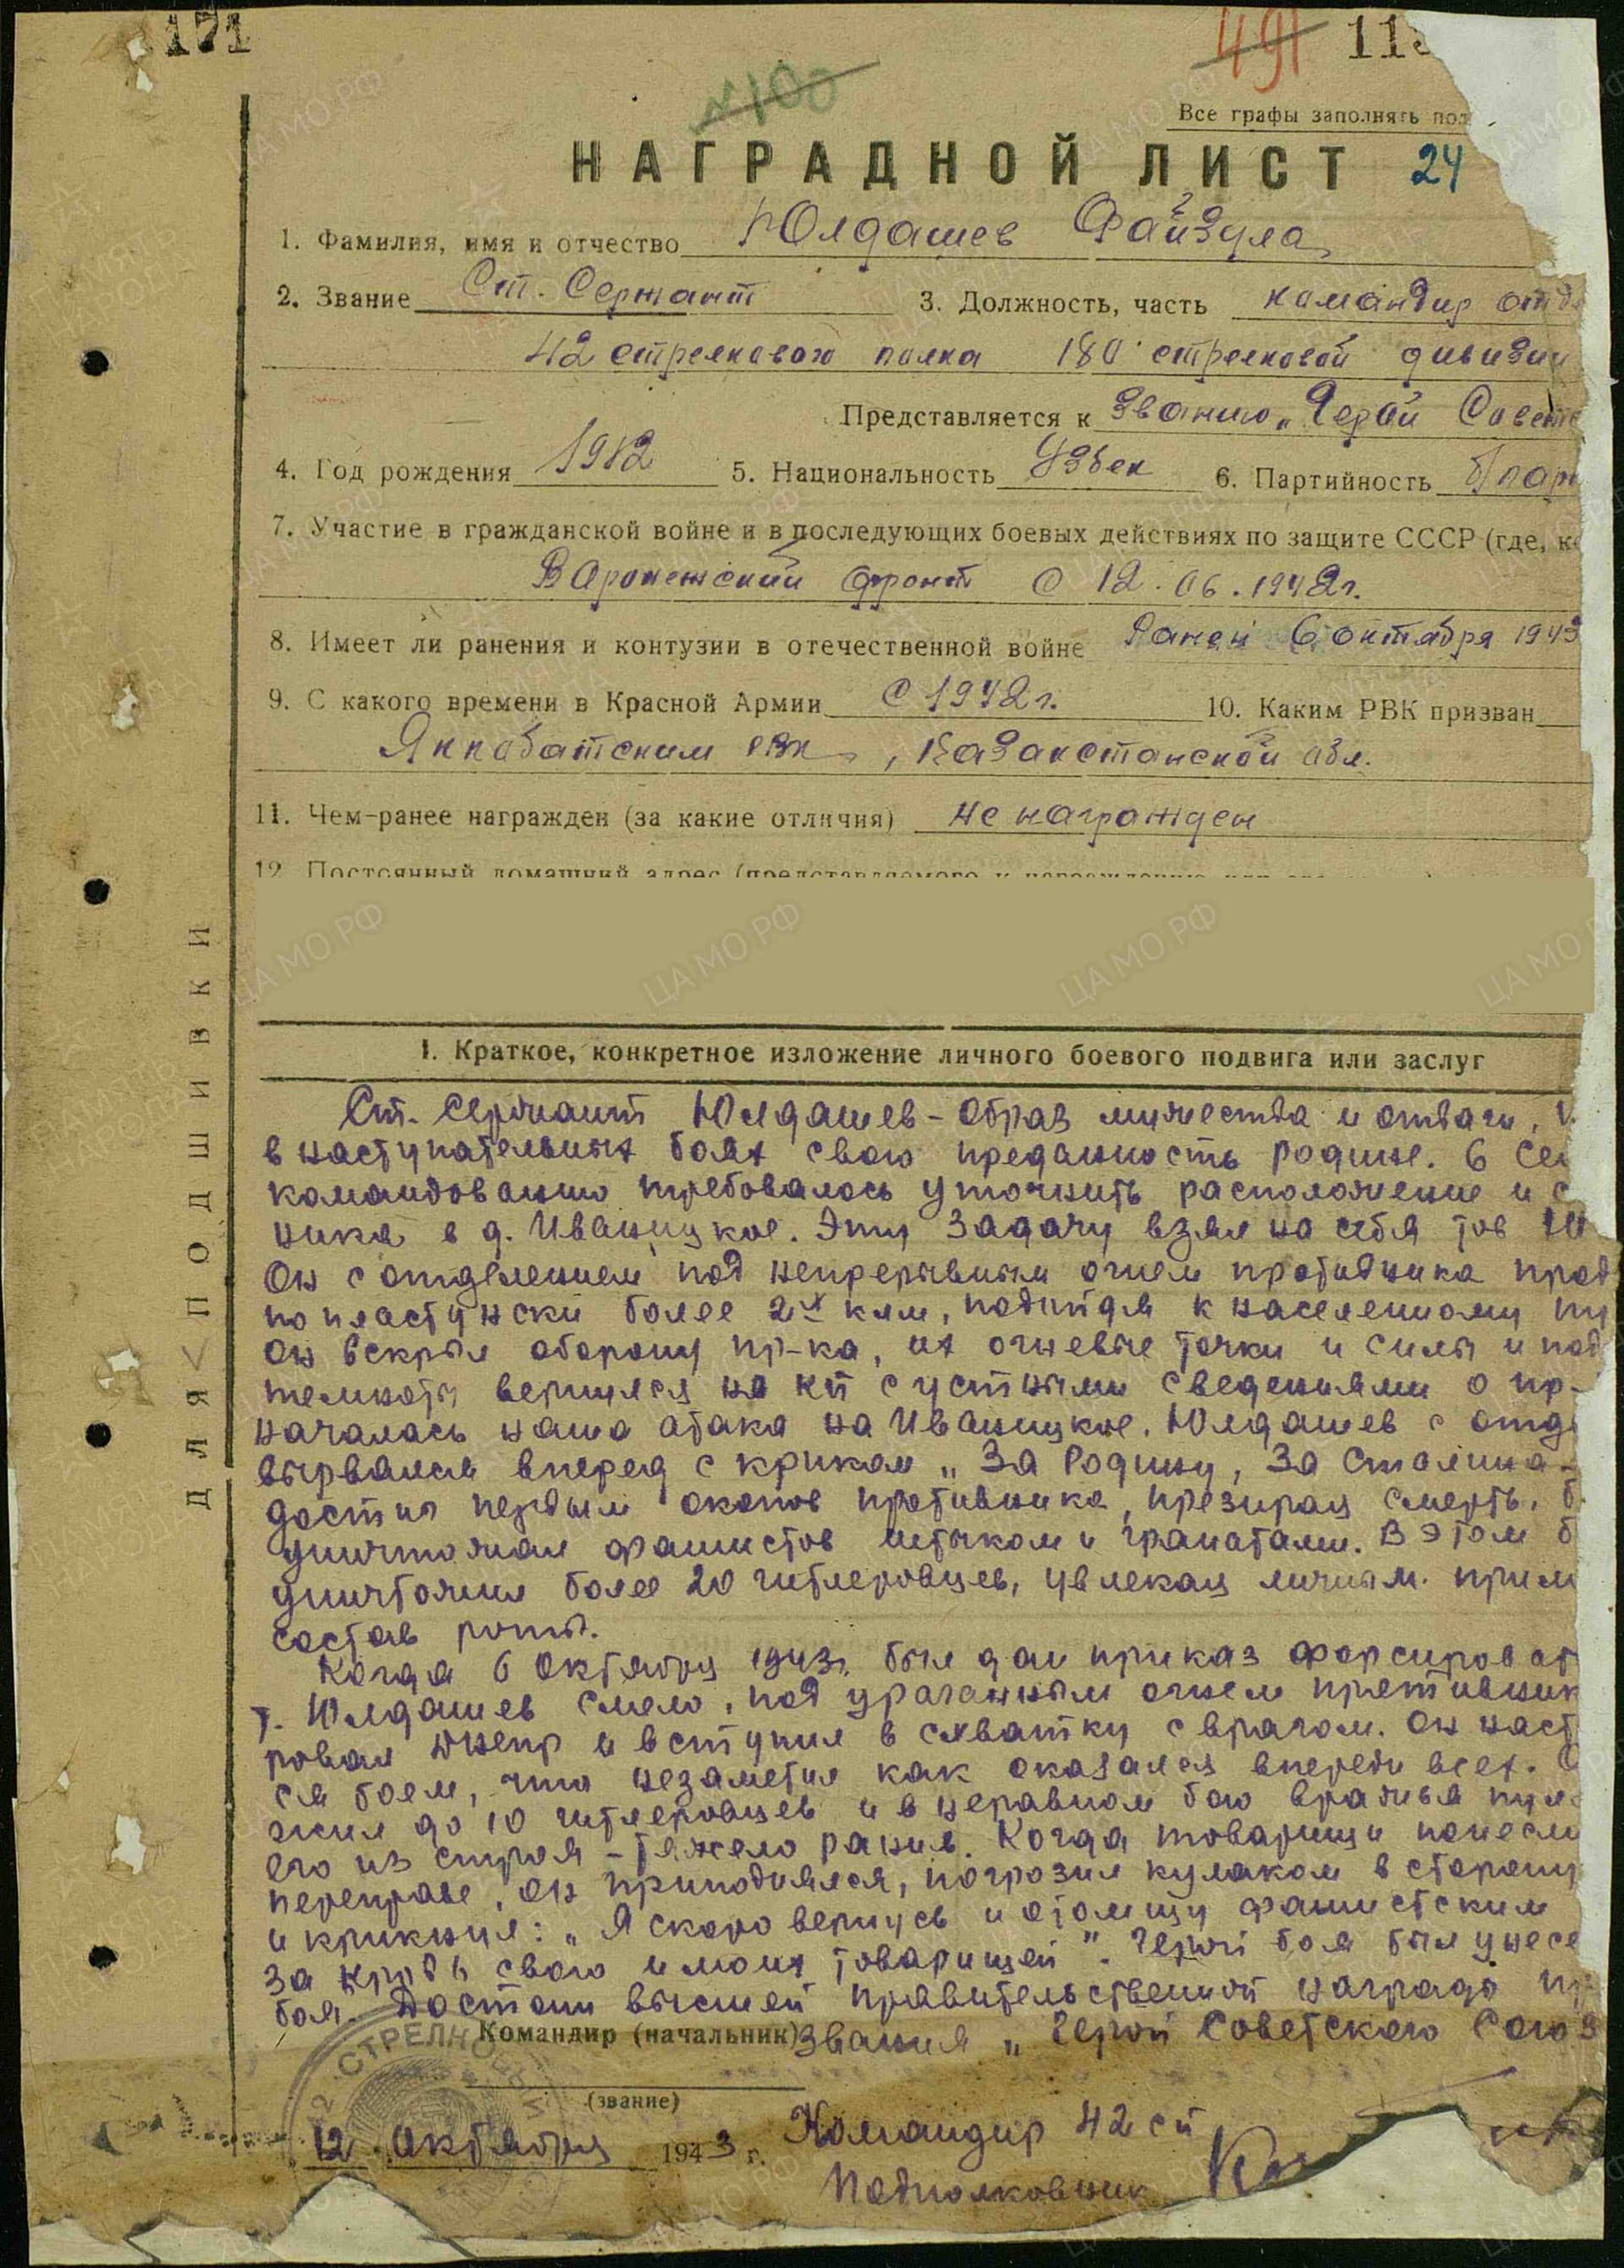 171
491 113
Все графы заполнять пол
НАГРАДНОЙ ЛИСТ 24
1. Фамилия, имя и отчество Юлдашев Файзула
2. Звание Ст. Сержант 3. Должность, часть командир отд
42 стрелкового полка 180 стрелковой дивизии
Представляется к званию „Герой Советс
4. Год рождения 1912 5. Национальность Узбек 6. Партийность б/пар
7. Участие в гражданской войне и в последующих боевых действиях по защите СССР (где, к
Воронежский фронт с 12.06.1942г.
8. Имеет ли ранения и контузии в отечественной войне Ранен 6 октября 1943
9. С какого времени в Красной Армии с 1942г. 10. Каким РВК призван
рвк, Казакстанской обл.
11. Чем ранее награжден (за какие отличия) не награжден
12. Постоянный домашний адрес (представляемого к награждению
ДЛЯ ПОДШИВКИ
I. Краткое, конкретное изложение личного боевого подвига или заслуг
Ст. сержант Юлдашев - образ мужества и отваги,
в наступательных боях свою преданность родине. 6 Сен
командованию требовалось уточнить расположение и с
ника в д. Иваницкое. Эту задачу взял на себя тов Ю
Он с отделением под непрерывным огнем противника про
по пластунски более 2х клм, подойдя к населенному пу
он вскрыл оборону пр-ка, их огневые точки и силы и под
темноты вернулся на КП с устными сведениями о пр-
началась наша атака на Иваницкое. Юлдашев с отд
вырвался вперед с криком „За Родину, За Сталина
достиг первым окопов противника, презирая смерть,
уничтожал фашистов штыком и гранатами. В этом б
уничтожил более 20 гитлеровцев, увлекая личным прим
состав роты.
Когда 6 Октября 1943г. был дан приказ форсироват
т. Юлдашев смело, под ураганным огнем противник
ровал Днепр и вступил в схватку с врагом. Он
ся боем, что незаметил как оказался впереди всех.
жил до 10 гитлеровцев и в неравном бою вражья пул
его из строя - тяжело ранив. Когда товарищи понесли
переправе, он приподнялся, погрозил кулаком в сторону
и крикнул: „Я скоро вернусь и отомщу фашистским
за кровь свою и моих товарищей". Герой боя был унесе
боя. Достоин высшей правительственной награды пр
Командир (начальник) звания „Герой Советского Союз
(звание)
12 октября 1943 г. Командир 42 сп
Подполковник
42 СТРЕЛКО
ЦАМО РФ